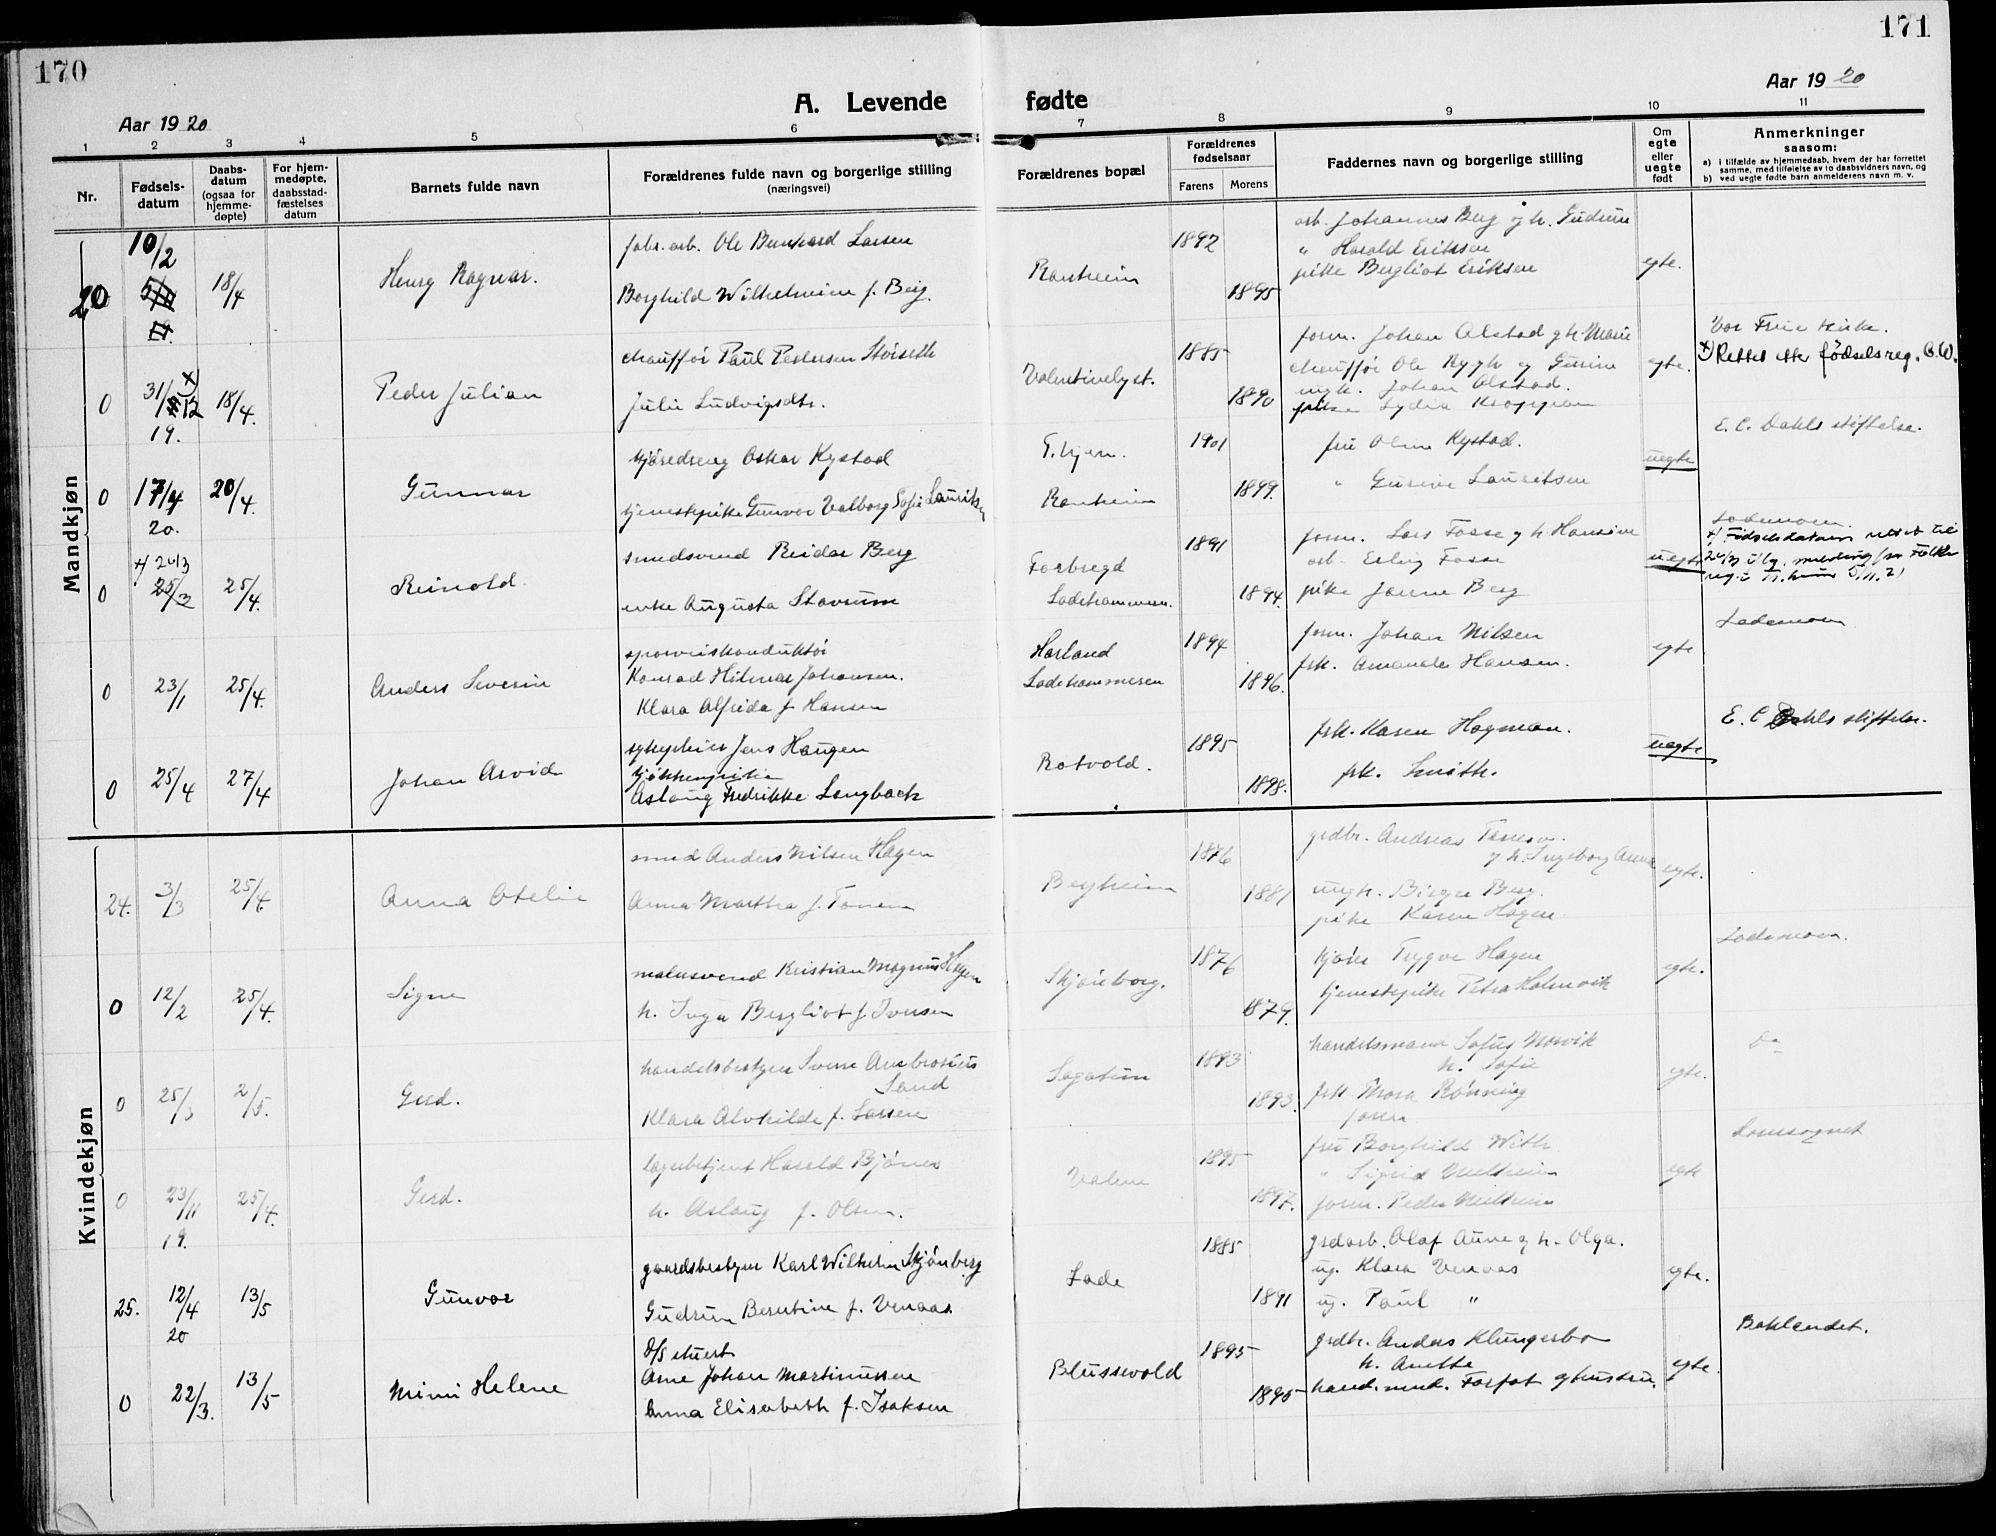 170
171
Aar 1920
A. Levende fødte
Aar 1920
1 2 3 4 5 6 7 8 9 10 11
Nr.
Fødsels-datum
Daabs-datum (ogsaa for hjemme-døpte)
For hjem-medøpte, daabsstad-fæstelses datum
Barnets fulde navn
Forældrenes fulde navn og borgerlige stilling (næringsvei)
Forældrenes bopæl
Forældrenes fødselsaar
Farens
Morens
Faddernes navn og borgerlige stilling
Om egte eller uegte født
Anmerkninger saasom:
a) i tilfælde av hjemmedaab, hvem der har forrettet samme, med tilføielse av to daabsvidners navn, og
b) ved uegte fødte barn anmelderens navn m. v.
Mandkjøn
20 10/2 18/4 Henry Ragnar.
fabr. arb. Ole Bernhard Larsen
Borghild Wilhelmine f. Berg.
Ranheim 1892 1895
arb. Johannes Berg og h. Gudrun
" Harald Eriksen
pike Bergliot Eriksen
egte.
0 31/12 x) 19. 18/4. Peder Julian
chauffør Paul Pedersen Støiseth
Julie Ludvigsdtr.
Valentinelyst. 1885 1890
form. Johan Alstad og h. Marie
chauffør Ole Rygh og Gurine
ungk. Johan Alstad.
pike Lydia
egte.
Vor Frue kirke.
x) Rettet efter fødselsreg. C.W.
0 17/4 20. 20/4. Gunnar
kjøredreng Oskar Rystad
tjenestepike Gunvor Valborg Sofie Lauritsen
T.hjem. Ranheim 1901 1899.
fru Oline Rystad.
" Gurine Lauritsen
uegte
E. C. Dahls stiftelse.
0 +) 24/3 25/3 25/4. Reinold
smedsvend Reidar Berg
enke Augusta Stavrum
Forbregd
Ladehammeren. 1891 1894.
form. Lars Fosse og h. Hansine
arb. Erling Fosse
pike Janne Berg
uegte
Lademoen.
+) Fødselsdatum rettet til
24/3 melding fra Folke
0 23/1 25/4. Anders Severin
sporveiskonduktør
Konrad Hilmar Johansen.
Klara Alfrida f. Hansen
Harland
Ladehammeren 1894 1896.
form. Johan Nilsen
frk. Amanda Hansen.
egte
Lademoen
0 25/4 27/4 Johan Arvid
sykepleier Jens Haugen
kjøkkenpike
Aslaug Fredrikke Langbach
Rotvold. 1895 1898.
frk. Karen Hagman.
frk. Smith.
uegte
E. C. Dahls stiftelse.
Kvindekjøn
24. 3/3 25/4. Anna Otelie
smed Anders Nilsen Hagen
Anna Martha f. Tonem
Bergheim 1876 1881
grdbr. Andreas
og h. Ingeborg Anna
ungk. Birger Berg.
pike Karen Hagen
egte.
0 12/2 25/4. Signe
malersvend Kristian Magnus Hagen
h. Inga Bergliot f. Iversen
Skjønborg. 1876 1879.
Trygve Hagen
tjenestepike Petra Holmvik
egte.
Lademoen.
0 25/3 2/5. Gerd.
handelsbestyrer Sverre Ambrosius
Sand
Klara Alvhilde f. Larsen
Sagatun 1893 1893.
handelsmand Sofus Norvik
h. Sofie
frk. Mosa Rønning
egte.
do
0 23/11 19. 25/4. Gerd.
lagerbetjent Harald Bjønes
h. Aslaug f. Olsen.
Valene 1895 1897.
fru Borghild With
" Sigrid Melheim
form. Peder Melheim
egte
Domsognet
25. 12/4 20 13/5 Gunvor
gaardsbestyrer Karl Wilhelm Skjønberg
Gudrun Berntine f. Venaas
Lade 1885 1891
grdarb. Olaf Aune og h. Olga.
ug. Klara Venaas
ug. Paul "
egte.
0 22/3. 13/5 Mimi Helene
D/S stuert
Arne Johan Martinussen
Anna Elisabeth f. Isaksen
Blussevold 1895 1895
grdbr. Anders Klungerbo
h. Anette
hand. md. Forfot og hustru.
egte.
Baklandet.